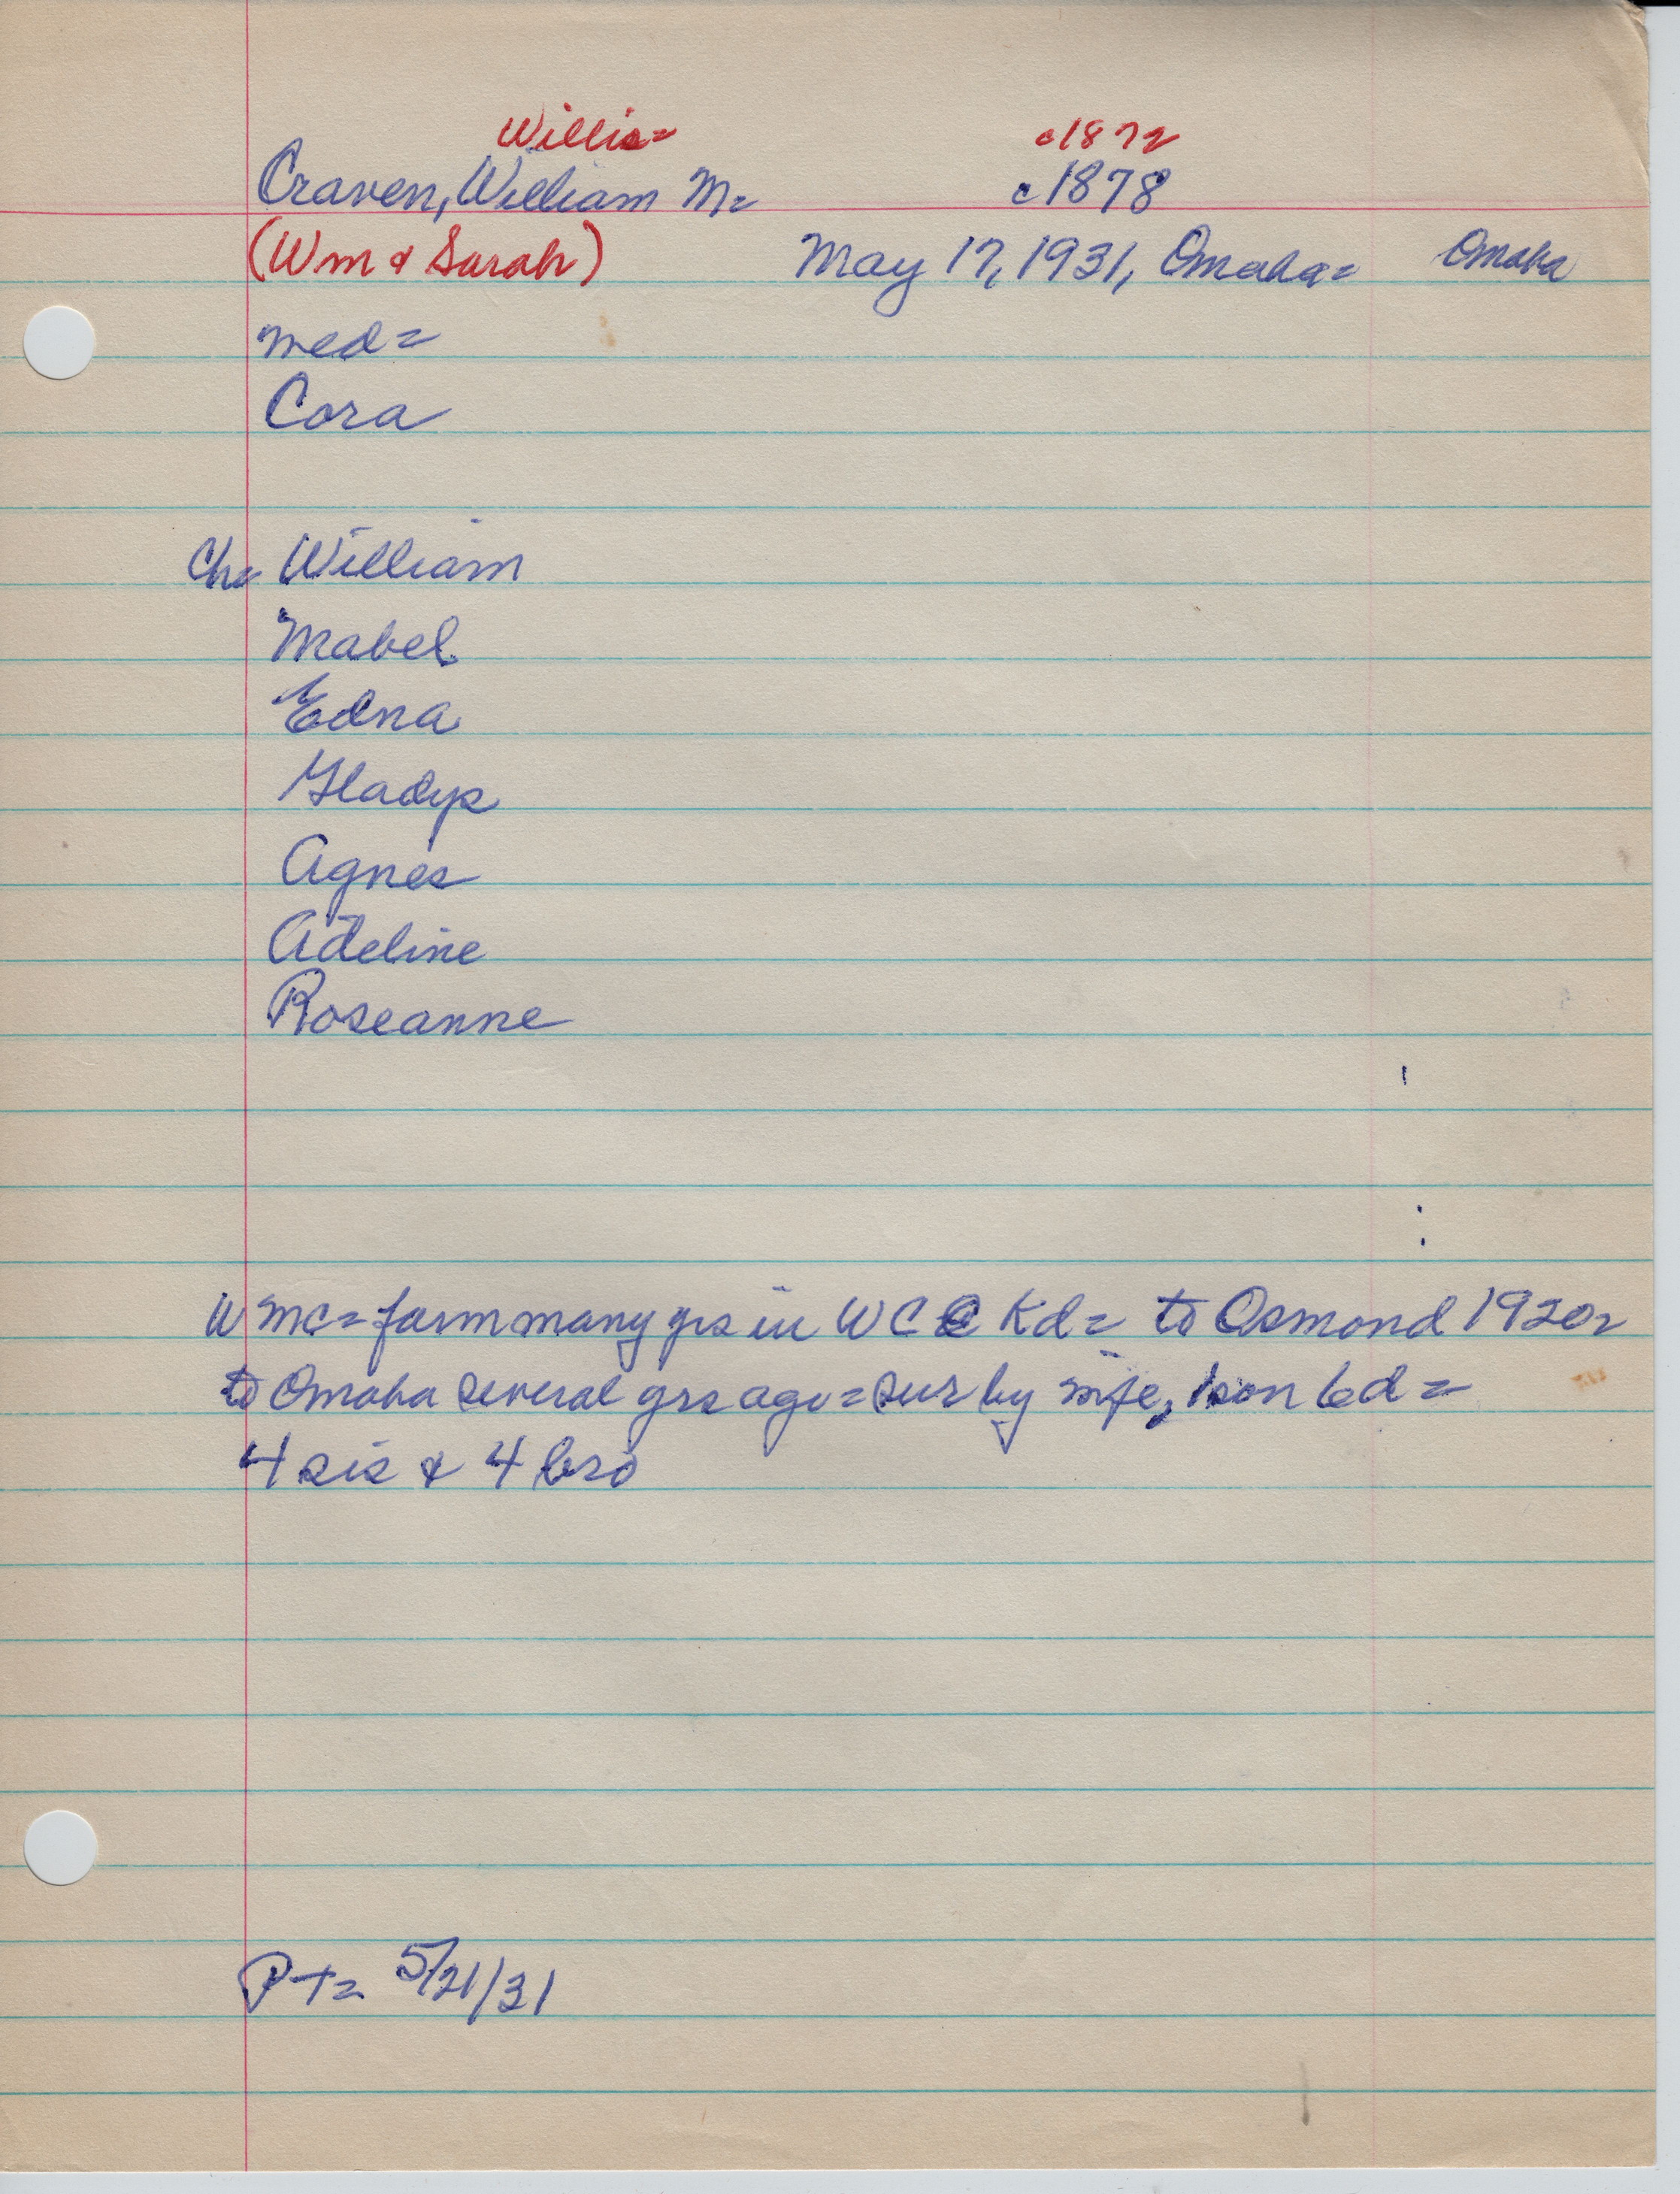 Willis= c1872
Craven, William M= c1878
(Wm & Sarah) May 17, 1931, Omaha= Omaha
med=
Cora
Ch= William
Mabel
Edna
Gladys
Agnes
Adeline
Roseanne
W mc= farm many yrs in W C C Kd= to Osmond 1920=
to Omaha several yrs ago= sur by wife, 1 son 6 d=
4 sis & 4 bro
PT= 5/21/31